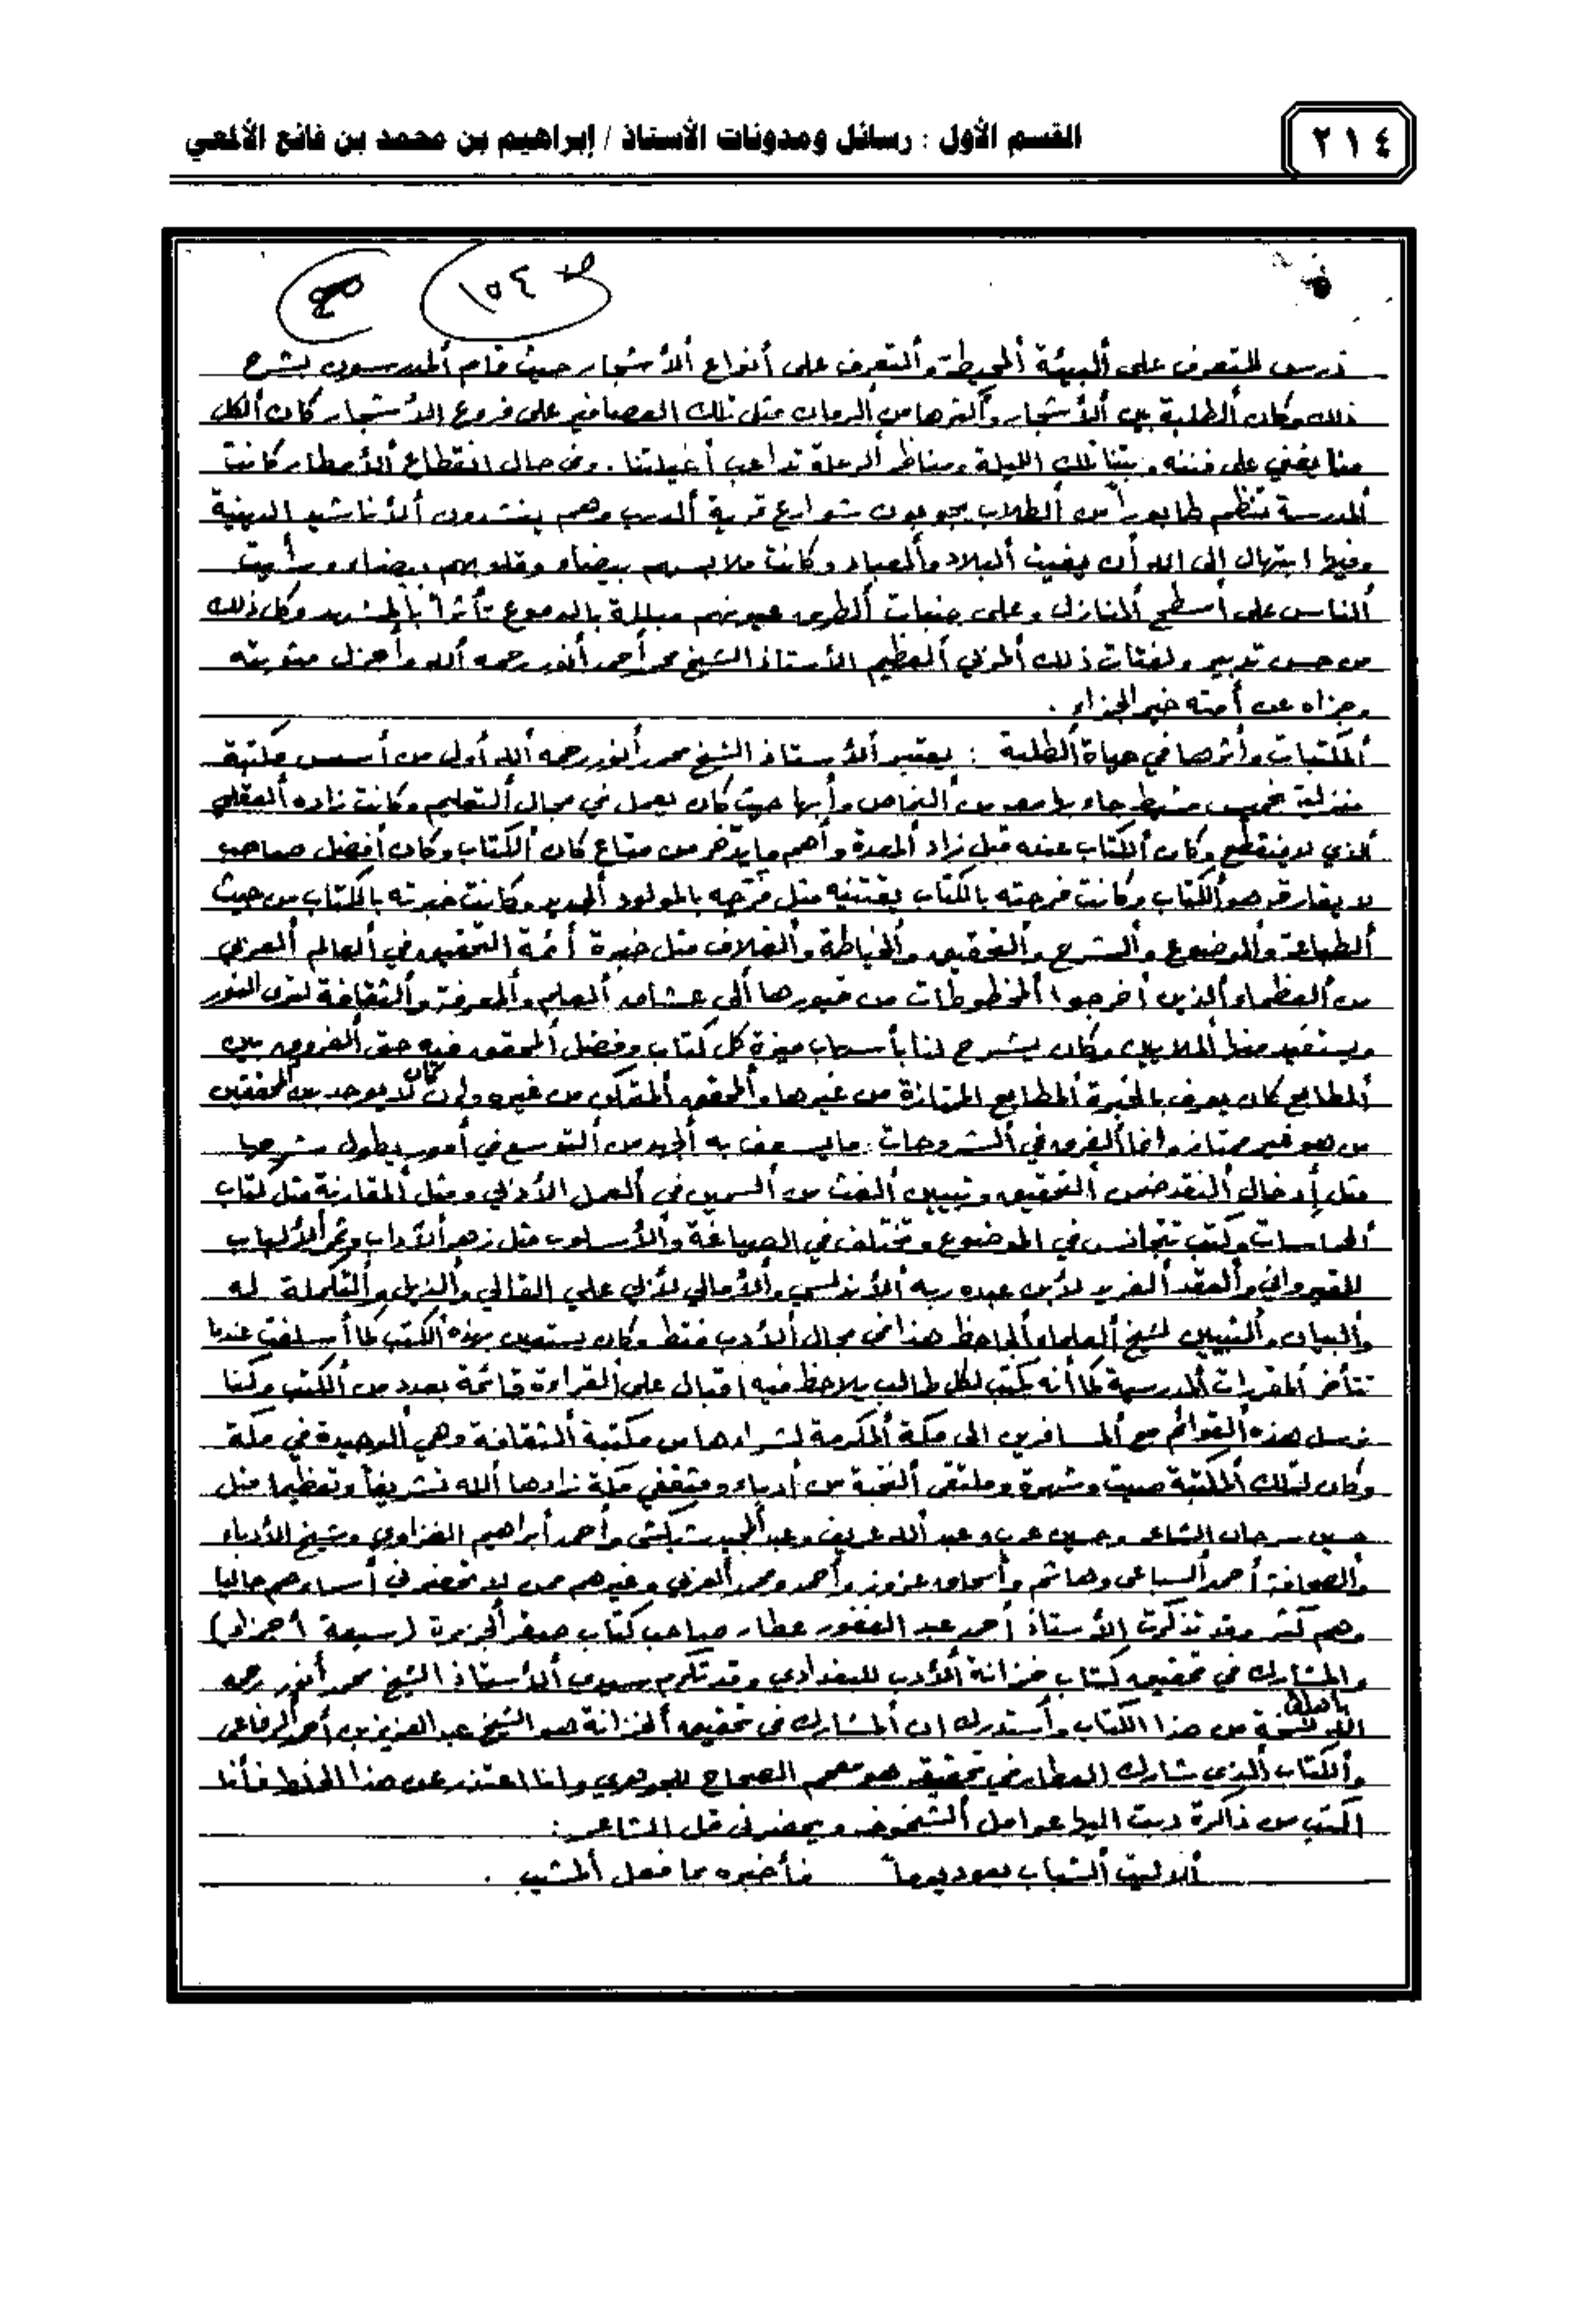 ٢١٤
القسم الأول : رسائل ومدونات الأستاذ / إبراهيم بن محمد بن فائع الألمعي
١٥٤
ندرس للتعرف على البيئة المحيطة والتعرف على أنواع الأشجار حيث قام المدرسون بشرح
ذلك وكان الطلبة بين الأشجار وأكثرها من الرمان مثل تلك العصافير على فروع الأشجار كان الكل
منا يغني على فننه وبتنا تلك الليلة ومناظر الرحلة تداعب أخيلتنا . وفي حال انقطاع الأمطار كانت
المدرسة تنظم طابوراً من الطلاب يجوبون شوارع قرية وهم ينشدون الأناشيد الدينية
وفيها ابتهال إلى الله أن يغيث البلاد والعباد وكانت ملابسهم بيضاء وقلوبهم بيضاء ورأيت
الناس على أسطح المنازل وعلى جنبات الطريق عيونهم مبللة بالدموع تأثراً بالمشهد وكل ذلك
من حسن تدبير ولفتات ذلك المربي العظيم الأستاذ الشيخ محمد أحمد أنور رحمه الله وأجزل مثوبته
وجزاه عن أمته خير الجزاء .
المكتبات وأثرها في حياة الطلبة : يعتبر الأستاذ الشيخ محمد أنور رحمه الله أول من أسس مكتبة
منزلية بخميس مشيط جاء بها معه من النماص وأبها حيث كان يعمل في مجال التعليم وكانت زاده العقلي
الذي لا ينقطع وكان الكتاب عنده قبل زاد المعدة وأهم ما يدخر من متاع كان الكتاب وكان أفضل صاحب
لا يفارقه هو الكتاب وكانت فرحته بالكتاب يقتنيه مثل فرحه بالمولود الجديد وكانت خبرته بالكتاب من حيث
الطباعة والموضوع والشرح والتحقيق والخياطة والغلاف مثل خبرة أئمة التحقيق في العالم العربي
من العظماء الذين أخرجوا المخطوطات من قبورها إلى عشاق العلم والمعرفة والثقافة لترى النور
ويستفيد منها الملايين وكان يشرح لنا بأسهاب ميزة كل كتاب وفضل المحقق فيه حتى الفروق بين
المطابع كان يعرف بالخبرة المطابع الممتازة من غيرها والمحقق المتمكن من غيره وإن كان لا يوجد بين المحققين
من هو غير ممتاز وإنما الفرق في الشروحات ما يسعف به الجهد من التوسع في أمور يطول شرحها
مثل إدخال النقد ضمن التحقيق وتبيين الغث من السمين في العمل الأدبي ومثل المقارنة مثل كتاب
الحماسات وكتب تتجانس في الموضوع وتختلف في الصياغة والأسلوب مثل زهر الآداب وثمر الألباب
للقيرواني والعقد الفريد لابن عبد ربه الأندلسي والأمالي لأبي علي القالي والذيل والتكملة له
والبيان والتبيين لشيخ العلماء الجاحظ هذا في مجال الأدب فقط وكان يستعين بهذه الكتب كما أسلفت عندما
تتأخر المقررات المدرسية كما أنه يكتب لكل طالب يلاحظ فيه إقبال على القراءة قائمة بعدد من الكتب وكنا
نرسل هذه القوائم مع المسافرين إلى مكة المكرمة لشراءها من مكتبة الثقافة وهي الوحيدة في مكة
وكان لتلك المكتبة صيت وشهرة وملتقى النخبة من أدباء ومثقفي مكة زادها الله تشريفاً وتعظيما مثل
حسين سرحان الشاعر وحسين عرب وعبد الله عريف وعبدالمجيد شبكشي وأحمد أبراهيم الغزاوي وشيخ الأدباء
والصحافة أحمد السباعي وهاشم عزوز وأحمد ومحمد العربي وغيرهم ممن لا تحضرني أسماءهم حاليا
وهم كثر وقد تذكرت الأستاذ أحمد عبد الغفور عطار صاحب كتاب صقر الجزيرة (سبعة أجزاء)
والمشارك في تحقيق كتاب خزانة الأدب للبغدادي وقد تكرم الأستاذ الشيخ محمد أنور رحمه
الله بأهدائي نسخة من هذا الكتاب وأستدرك ان المشارك في تحقيق الخزانة هو الشيخ عبد العزيز بن أحمد الرفاعي
والكتاب الذي شارك العطار في تحقيقه هو معجم الصحاح للجوهري وانا اعتذر عن هذا الخلط فأنا
اكتب من ذاكرة دبت اليها عوامل الشيخوخة ويحضرني قول الشاعر :
ألا ليت الشباب يعود يوماً فأخبره بما فعل المشيب .